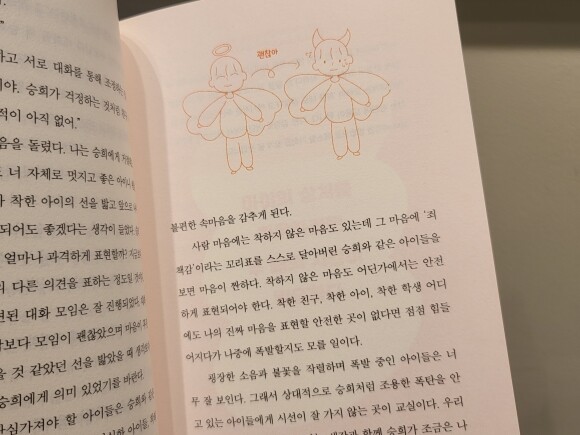 하고 서로 대화를 통해 조정하는
이야. 승희가 걱정하는 것처럼
적이 아직 없어."
음을 돌렸다. 나는 승희에게
너 자체로 멋지고 좋은
착한 아이의 선을 밟고 앞으로
되어도 좋겠다는 생각이 들었다.
얼마나 과격하게 표현할까?
의 다른 의견을 표하는 정도일
련된 대화 모임은 잘 진행되었다.
각보다 모임이 괜찮았으며 마음이
을 것 같았던 선을 밟았을 때
승희에게 의미 있었기를 바란다.
심가져야 할 아이들은 승희와
괜찮아
불편한 속마음을 감추게 된다.
사람 마음에는 착하지 않은 마음도 있는데 그 마음에 '죄
책감'이라는 꼬리표를 스스로 달아버린 승희와 같은 아이들을
보면 마음이 짠하다. 착하지 않은 마음도 어딘가에서는 안전
하게 표현되어야 한다. 착한 친구, 착한 아이, 착한 학생 어디
에도 나의 진짜 마음을 표현할 안전한 곳이 없다면 점점 힘들
어지다가 나중에 폭발할지도 모를 일이다.
굉장한 소음과 불꽃을 작렬하며 폭발 중인 아이들은 너
무 잘 보인다. 그래서 상대적으로 승희처럼 조용한 폭탄을 안
고 있는 아이들에게 시선이 잘 가지 않는 곳이 교실이다. 우리
생각과 함께 승희가 조금은 나